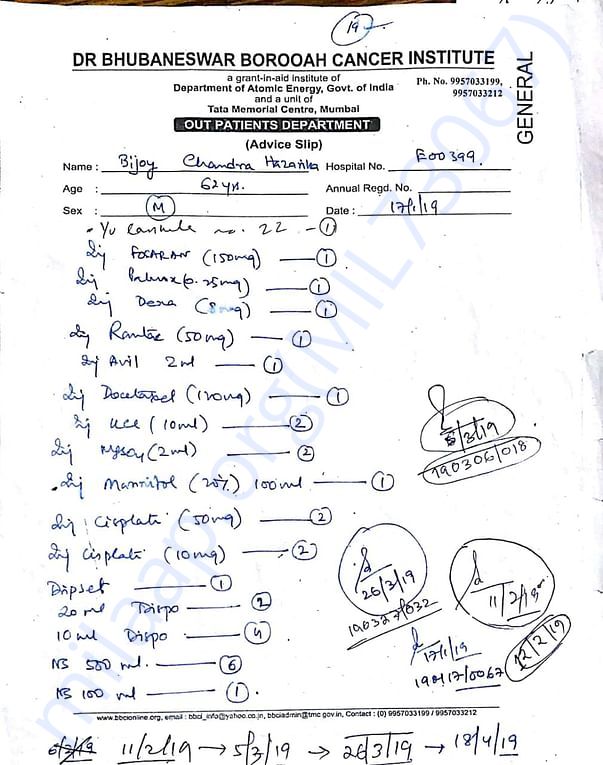 19
DR BHUBANESWAR BOROOAH CANCER INSTITUTE
a grant-in-aid institute of
Department of Atomic Energy, Govt. of India
and a unit of
Tata Memorial Centre, Mumbai
Ph. No. 9957033199,
9957033212
GENERAL
OUT PATIENTS DEPARTMENT
(Advice Slip)
Name : Bijoy Chandra Hazarika Hospital No. E00399.
Age : 62 yrs. Annual Regd. No.
Sex : M Date : 17/1/19
no. 22 - 1
Inj (150mg) — 1
Inj (0.25mg) — 1
Inj Dexa (8mg) — 1
Inj Rantac (50mg) — 1
Inj Avil 2ml — 1
Inj Docetaxel (120mg) — 1
Inj KCl (10ml) — 2
Inj (2ml) — 2
Inj Mannitol (20%) 100ml — 1
Inj Cisplatin (50mg) — 2
Inj Cisplatin (10mg) — 2
Dripset — 1
20 ml Dispo — 2
10 ml Dispo — 4
NS 500 ml. — 6
NS 100 ml — 1.
5/3/19
190306/018
26/3/19
190327/032
11/2/19
12/2/19
17/1/19
190117/0067
www.bbcionline.org, email : bbci_info@yahoo.co.in, bbciadmin@tmc.gov.in, Contact : (0) 9957033199 / 9957033212
11/2/19 → 5/3/19 → 26/3/19 → 18/4/19
milaap.org(MIL73067)